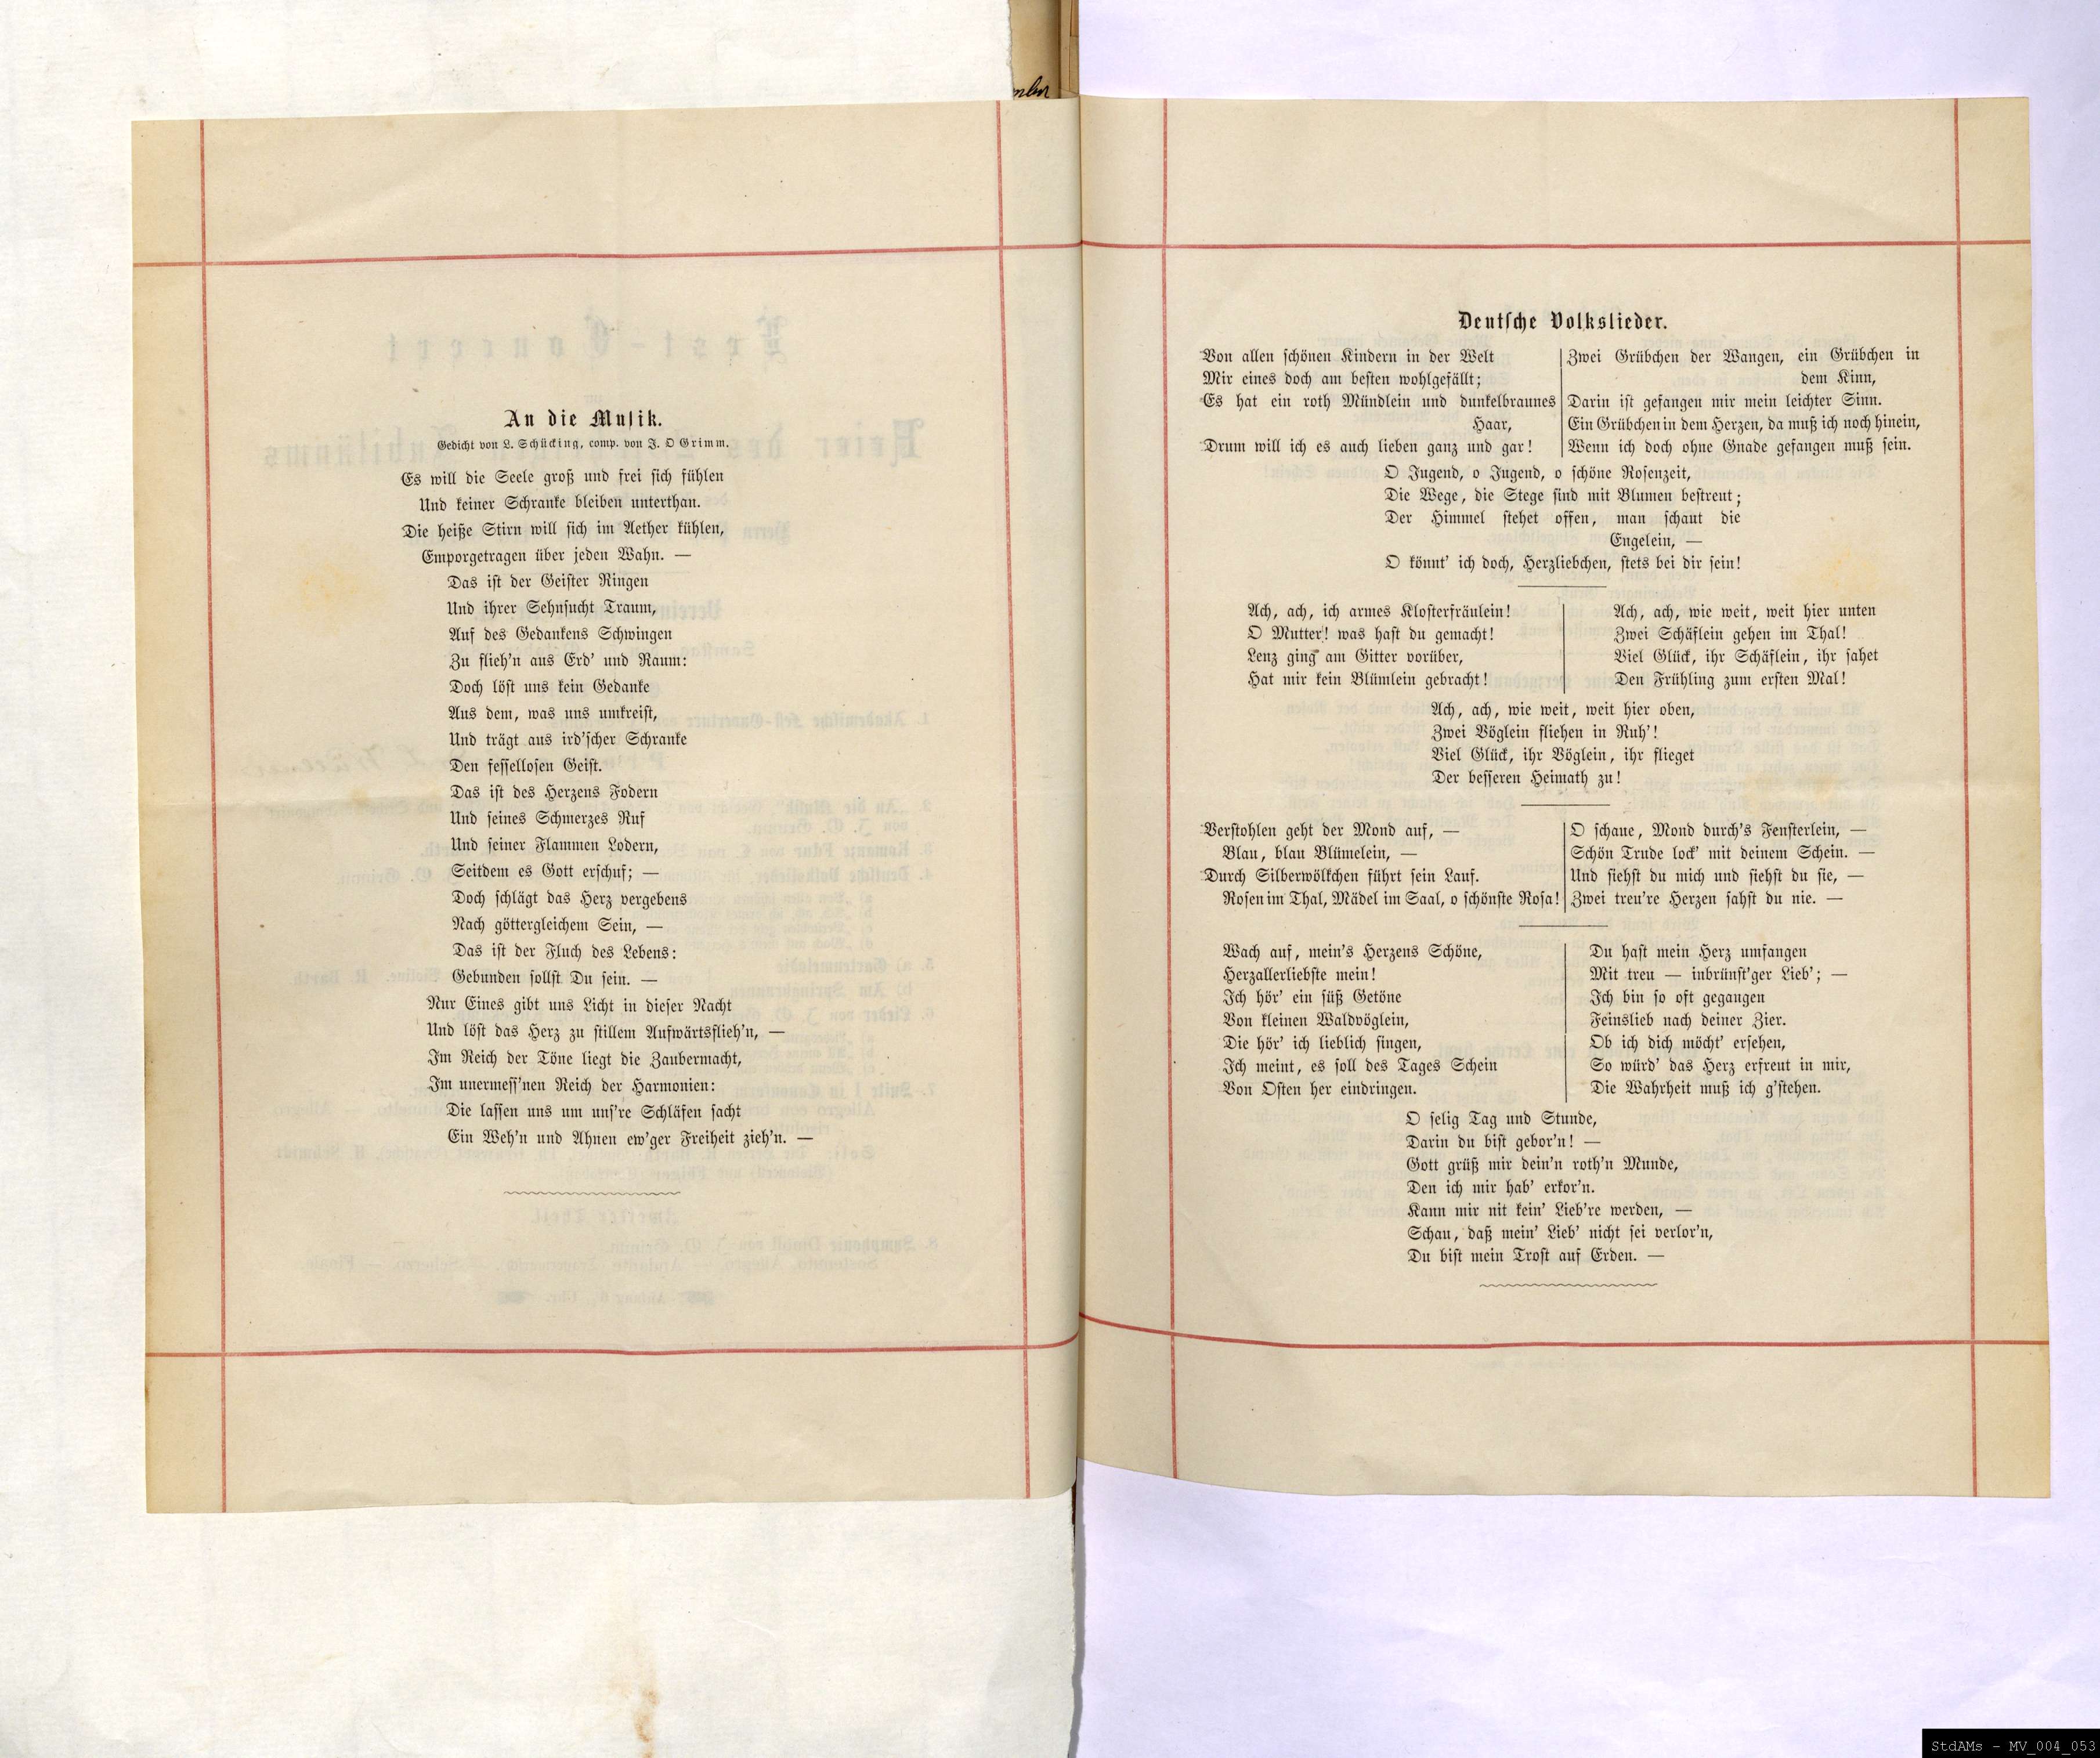 An die Musik.
Gedicht von L. Schücking, comp. von J. O Grimm.
Es will die Seele groß und frei sich fühlen
Und keiner Schranke bleiben unterthan.
Die heiße Stirn will sich im Aether kühlen,
Emporgetragen über jeden Wahn. —
Das ist der Geister Ringen
Und ihrer Sehnsucht Traum,
Auf des Gedankens Schwingen
Zu flieh'n aus Erd' und Raum:
Doch löst uns kein Gedanke
Aus dem, was uns umkreist,
Und trägt aus ird'scher Schranke
Den fessellosen Geist.
Das ist des Herzens Fodern
Und seines Schmerzes Ruf
Und seiner Flammen Lodern,
Seitdem es Gott erschuf; —
Doch schlägt das Herz vergebens
Nach göttergleichem Sein, —
Das ist der Fluch des Lebens:
Gebunden sollst Du sein. —
Nur Eines gibt uns Licht in dieser Nacht
Und löst das Herz zu stillem Aufwärtsflieh'n, —
Im Reich der Töne liegt die Zaubermacht,
Im unermess'nen Reich der Harmonien:
Die lassen uns um uns're Schläfen sacht
Ein Weh'n und Ahnen ew'ger Freiheit zieh'n. —
Deutsche Volkslieder.
Von allen schönen Kindern in der Welt
Mir eines doch am besten wohlgefällt;
Es hat ein roth Mündlein und dunkelbraunes
Haar,
Drum will ich es auch lieben ganz und gar!
Zwei Grübchen der Wangen, ein Grübchen in
dem Kinn,
Darin ist gefangen mir mein leichter Sinn.
Ein Grübchen in dem Herzen, da muß ich noch hinein,
Wenn ich doch ohne Gnade gefangen muß sein.
O Jugend, o Jugend, o schöne Rosenzeit,
Die Wege, die Stege sind mit Blumen bestreut;
Der Himmel stehet offen, man schaut die
Engelein, —
O könnt' ich doch, Herzliebchen, stets bei dir sein!
Ach, ach, ich armes Klosterfräulein!
O Mutter! was hast du gemacht!
Lenz ging am Gitter vorüber,
Hat mir kein Blümlein gebracht!
Ach, ach, wie weit, weit hier unten
Zwei Schäflein gehen im Thal!
Viel Glück, ihr Schäflein, ihr sahet
Den Frühling zum ersten Mal!
Ach, ach, wie weit, weit hier oben,
Zwei Vöglein fliehen in Ruh'!
Viel Glück, ihr Vöglein, ihr flieget
Der besseren Heimath zu!
Verstohlen geht der Mond auf, —
Blau, blau Blümelein, —
Durch Silberwölkchen führt sein Lauf.
Rosen im Thal, Mädel im Saal, o schönste Rosa!
O schaue, Mond durch's Fensterlein, —
Schön Trude lock' mit deinem Schein. —
Und siehst du mich und siehst du sie, —
Zwei treu're Herzen sahst du nie. —
Wach auf, mein's Herzens Schöne,
Herzallerliebste mein!
Ich hör' ein süß Getöne
Von kleinen Waldvöglein,
Die hör' ich lieblich singen,
Ich meint, es soll des Tages Schein
Von Osten her eindringen.
Du hast mein Herz umfangen
Mit treu — inbrünst'ger Lieb'; —
Ich bin so oft gegangen
Feinslieb nach deiner Zier.
Ob ich dich möcht' ersehen,
So würd' das Herz erfreut in mir,
Die Wahrheit muß ich g'stehen.
O selig Tag und Stunde,
Darin du bist gebor'n! —
Gott grüß mir dein'n roth'n Munde,
Den ich mir hab' erkor'n.
Kann mir nit kein' Lieb're werden, —
Schau, daß mein' Lieb' nicht sei verlor'n,
Du bist mein Trost auf Erden. —
StdAMs - MV_004_053